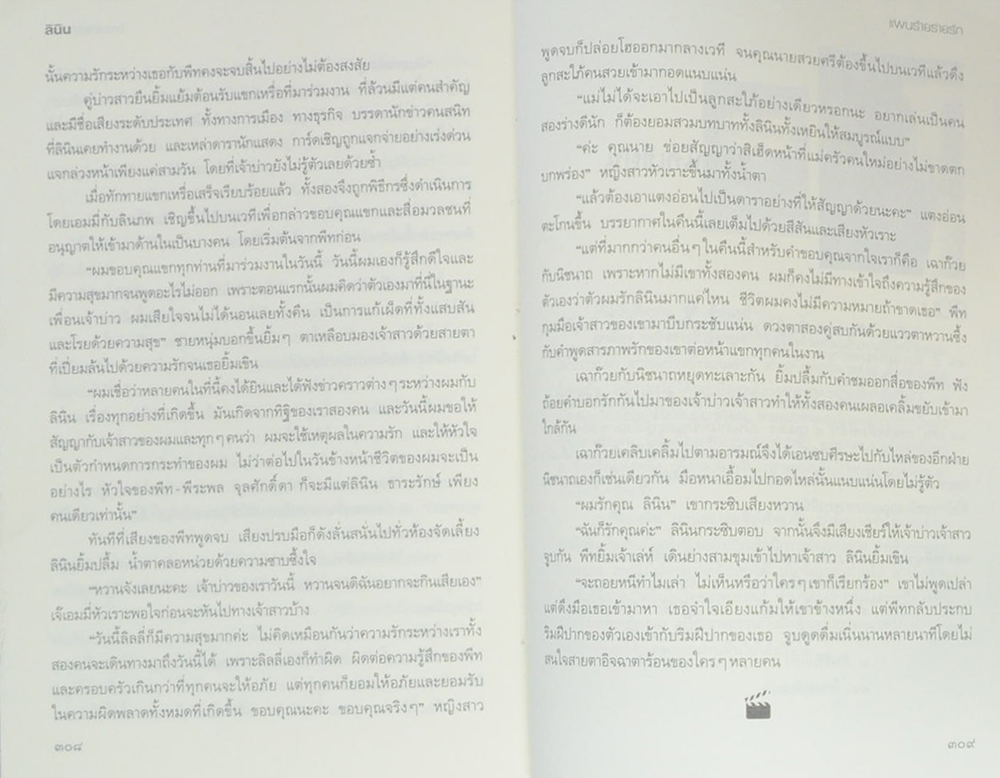 ลินิน
นั้นความรักระหว่างเธอกับพีทคงจะจบสิ้นไปอย่างไม่ต้องสงสัย
คู่บ่าวสาวยืนยิ้มแย้มต้อนรับแขกเหรื่อที่มาร่วมงาน ที่ล้วนมีแต่คนสำคัญ
และมีชื่อเสียงระดับประเทศ ทั้งทางการเมือง ทางธุรกิจ บรรดานักข่าวคนสนิท
ที่ลินินเคยทำงานด้วย และเหล่าดารานักแสดง การ์ดเชิญถูกแจกจ่ายอย่างเร่งด่วน
แจกล่วงหน้าเพียงแค่สามวัน โดยที่เจ้าบ่าวยังไม่รู้ตัวเลยด้วยซ้ำ
เมื่อทักทายแขกเหรื่อเสร็จเรียบร้อยแล้ว ทั้งสองจึงถูกพิธีกรซึ่งดำเนินการ
โดยเอมมี่กับลินภพ เชิญขึ้นไปบนเวทีเพื่อกล่าวขอบคุณแขกและสื่อมวลชนที่
อนุญาตให้เข้ามาด้านในเป็นบางคน โดยเริ่มต้นจากพีทก่อน
“ผมขอบคุณแขกทุกท่านที่มาร่วมงานในวันนี้ วันนี้ผมเองก็รู้สึกดีใจและ
มีความสุขมากจนพูดอะไรไม่ออก เพราะตอนแรกนั้นผมคิดว่าตัวเองมาที่นี่ในฐานะ
เพื่อนเจ้าบ่าว ผมเสียใจจนไม่ได้นอนเลยทั้งคืน เป็นการแก้เผ็ดที่ทั้งแสบสัน
และโรยด้วยความสุข” ชายหนุ่มบอกขึ้นยิ้มๆ ตาเหลือบมองเจ้าสาวด้วยสายตา
ที่เปี่ยมล้นไปด้วยความรักจนเธอยิ้มเขิน
“ผมเชื่อว่าหลายคนในที่นี้คงได้ยินและได้ฟังข่าวคราวต่างๆ ระหว่างผมกับ
ลินิน เรื่องทุกอย่างที่เกิดขึ้น มันเกิดจากทิฐิของเราสองคน และวันนี้ผมขอให้
สัญญากับเจ้าสาวของผมและทุกๆ คนว่า ผมจะใช้เหตุผลในความรัก และให้หัวใจ
เป็นตัวกำหนดการกระทำของผม ไม่ว่าต่อไปในวันข้างหน้าชีวิตของผมจะเป็น
อย่างไร หัวใจของพีท-พีระพล จุลศักดิ์ดา ก็จะมีแต่ลินิน ธาระรักษ์ เพียง
คนเดียวเท่านั้น”
ทันทีที่เสียงของพีทพูดจบ เสียงปรบมือก็ดังลั่นสนั่นไปทั่วห้องจัดเลี้ยง
ลินินยิ้มปลื้ม น้ำตาคลอหน่วยด้วยความซาบซึ้งใจ
“หวานจังเลยนะคะ เจ้าบ่าวของเราวันนี้ หวานจนดิฉันอยากจะกินเสียเอง”
เจ๊เอมมี่หัวเราะพอใจก่อนจะหันไปทางเจ้าสาวบ้าง
“วันนี้ลิลลี่ก็มีความสุขมากค่ะ ไม่คิดเหมือนกันว่าความรักระหว่างเราทั้ง
สองคนจะเดินทางมาถึงวันนี้ได้ เพราะลิลลี่เองก็ทำผิด ผิดต่อความรู้สึกของพีท
และครอบครัวเกินกว่าที่ทุกคนจะให้อภัย แต่ทุกคนก็ยอมให้อภัยและยอมรับ
ในความผิดพลาดทั้งหมดที่เกิดขึ้น ขอบคุณนะคะ ขอบคุณจริงๆ” หญิงสาว
๓๐๘
แผนร้ายร่ายรัก
พูดจบก็ปล่อยโฮออกมากลางเวที จนคุณนายสวยศรีต้องขึ้นไปบนเวทีแล้วดึง
ลูกสะใภ้คนสวยเข้ามากอดแนบแน่น
“แม่ไม่ได้จะเอาไปเป็นลูกสะใภ้อย่างเดียวหรอกนะ อยากเล่นเป็นคน
สองร่างดีนัก ก็ต้องยอมสวมบทบาททั้งลินินทั้งเหยินให้สมบูรณ์แบบ”
“ค่ะ คุณนาย ข่อยสัญญาว่าสิเฮ็ดหน้าที่แม่ครัวคนใหม่อย่างไม่ขาดตก
บกพร่อง” หญิงสาวหัวเราะขึ้นมาทั้งน้ำตา
“แล้วต้องเอาแตงอ่อนไปเป็นดาราอย่างที่ให้สัญญาด้วยนะคะ” แตงอ่อน
ตะโกนขึ้น บรรยากาศในคืนนี้เลยเต็มไปด้วยสีสันและเสียงหัวเราะ
“แต่ที่มากกว่าคนอื่นๆ ในคืนนี้สำหรับคำขอบคุณจากใจเราก็คือ เฉาก๊วย
กับนิชนาถ เพราะหากไม่มีเขาทั้งสองคน ผมก็คงไม่มีทางเข้าใจถึงความรู้สึกของ
ตัวเองว่าตัวผมรักลินินมากแค่ไหน ชีวิตผมคงไม่มีความหมายถ้าขาดเธอ” พีท
กุมมือเจ้าสาวของเขามาบีบกระชับแน่น ดวงตาสองคู่สบกันด้วยแววตาหวานซึ้ง
กับคำพูดสารภาพรักของเขาต่อหน้าแขกทุกคนในงาน
เฉาก๊วยกับนิชนาถหยุดทะเลาะกัน ยิ้มปลื้มกับคำชมออกสื่อของพีท ฟัง
ถ้อยคำบอกรักกันไปมาของเจ้าบ่าวเจ้าสาวทำให้ทั้งสองคนเผลอเคลิ้มขยับเข้ามา
ใกล้กัน
เฉาก๊วยเคลิบเคลิ้มไปตามอารมณ์จึงได้เอนซบศีรษะไปกับไหล่ของอีกฝ่าย
นิชนาถเองก็เช่นเดียวกัน มือหนาเอื้อมไปกอดไหล่นั้นแนบแน่นโดยไม่รู้ตัว
“ผมรักคุณ ลินิน” เขากระซิบเสียงหวาน
“ฉันก็รักคุณค่ะ” ลินินกระซิบตอบ จากนั้นจึงมีเสียงเชียร์ให้เจ้าบ่าวเจ้าสาว
จูบกัน พีทยิ้มเจ้าเล่ห์ เดินย่างสามขุมเข้าไปหาเจ้าสาว ลินินยิ้มเขิน
“จะถอยหนีทำไมเล่า ไม่เห็นหรือว่าใครๆ เขาก็เรียกร้อง” เขาไม่พูดเปล่า
แต่ดึงมือเธอเข้ามาหา เธอจำใจเอียงแก้มให้เขาข้างหนึ่ง แต่พีทกลับประกบ
ริมฝีปากของตัวเองเข้ากับริมฝีปากของเธอ จูบดูดดื่มเนิ่นนานหลายนาทีโดยไม่
สนใจสายตาอิจฉาตาร้อนของใครๆ หลายคน
๓๐๙